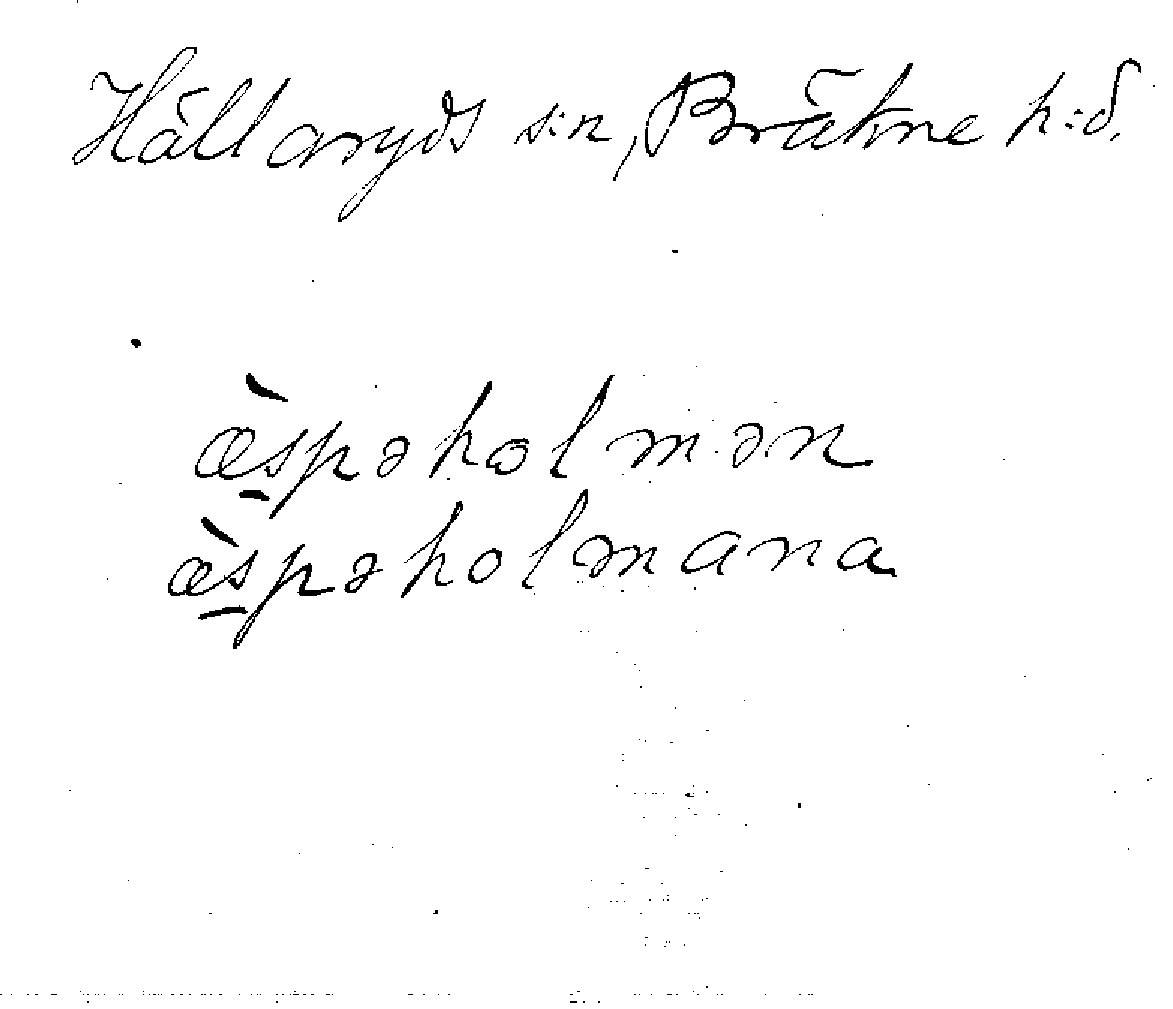 Hällaryds s:n, Bräkne h:d.
æ̀s̠pəholmən
æ̀s̠pəholmana